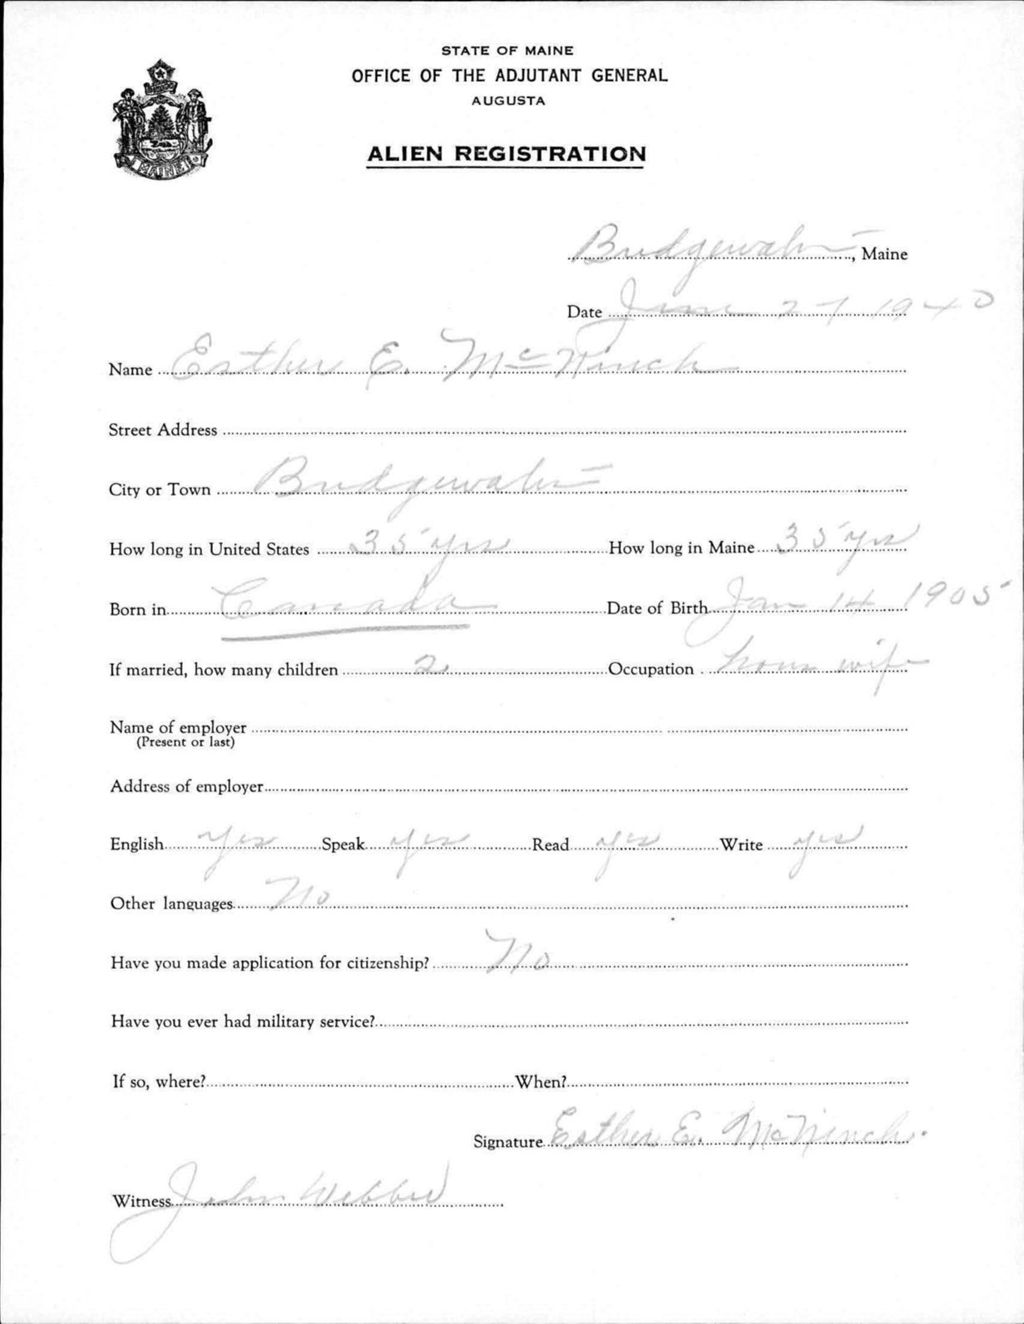 STATE OF MAINE
OFFICE OF THE ADJUTANT GENERAL
AUGUSTA
ALIEN REGISTRATION
MAINE
Bridgewater, Maine
Date June 27 1940
Name Esther E. McNinch
Street Address
City or Town Bridgewater
How long in United States 35 yrs How long in Maine 35 yrs
Born in Canada Date of Birth Jan 14 1905
If married, how many children 2 Occupation house wife
Name of employer
(Present or last)
Address of employer
English yes Speak yes Read yes Write yes
Other languages No
Have you made application for citizenship? No
Have you ever had military service?
If so, where? When?
Signature Esther E. McNinch.
Witness John Webber